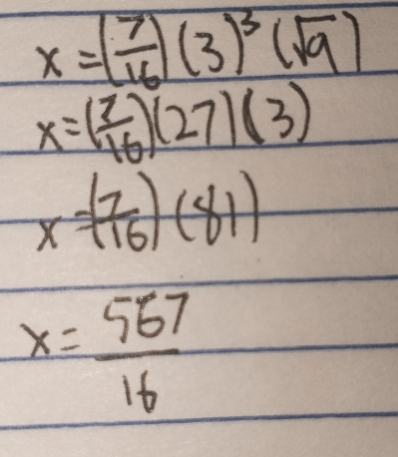 x = (7/16) (3)³ (√9)
x = (7/16) (27) (3)
x = (7/16) (81)
x = 567/16